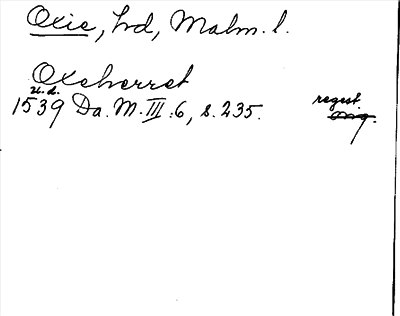 Oxie, hd, Malm. l.
Oxeherret
u.d.
1539 Da. M. III:6, s. 235. regest.